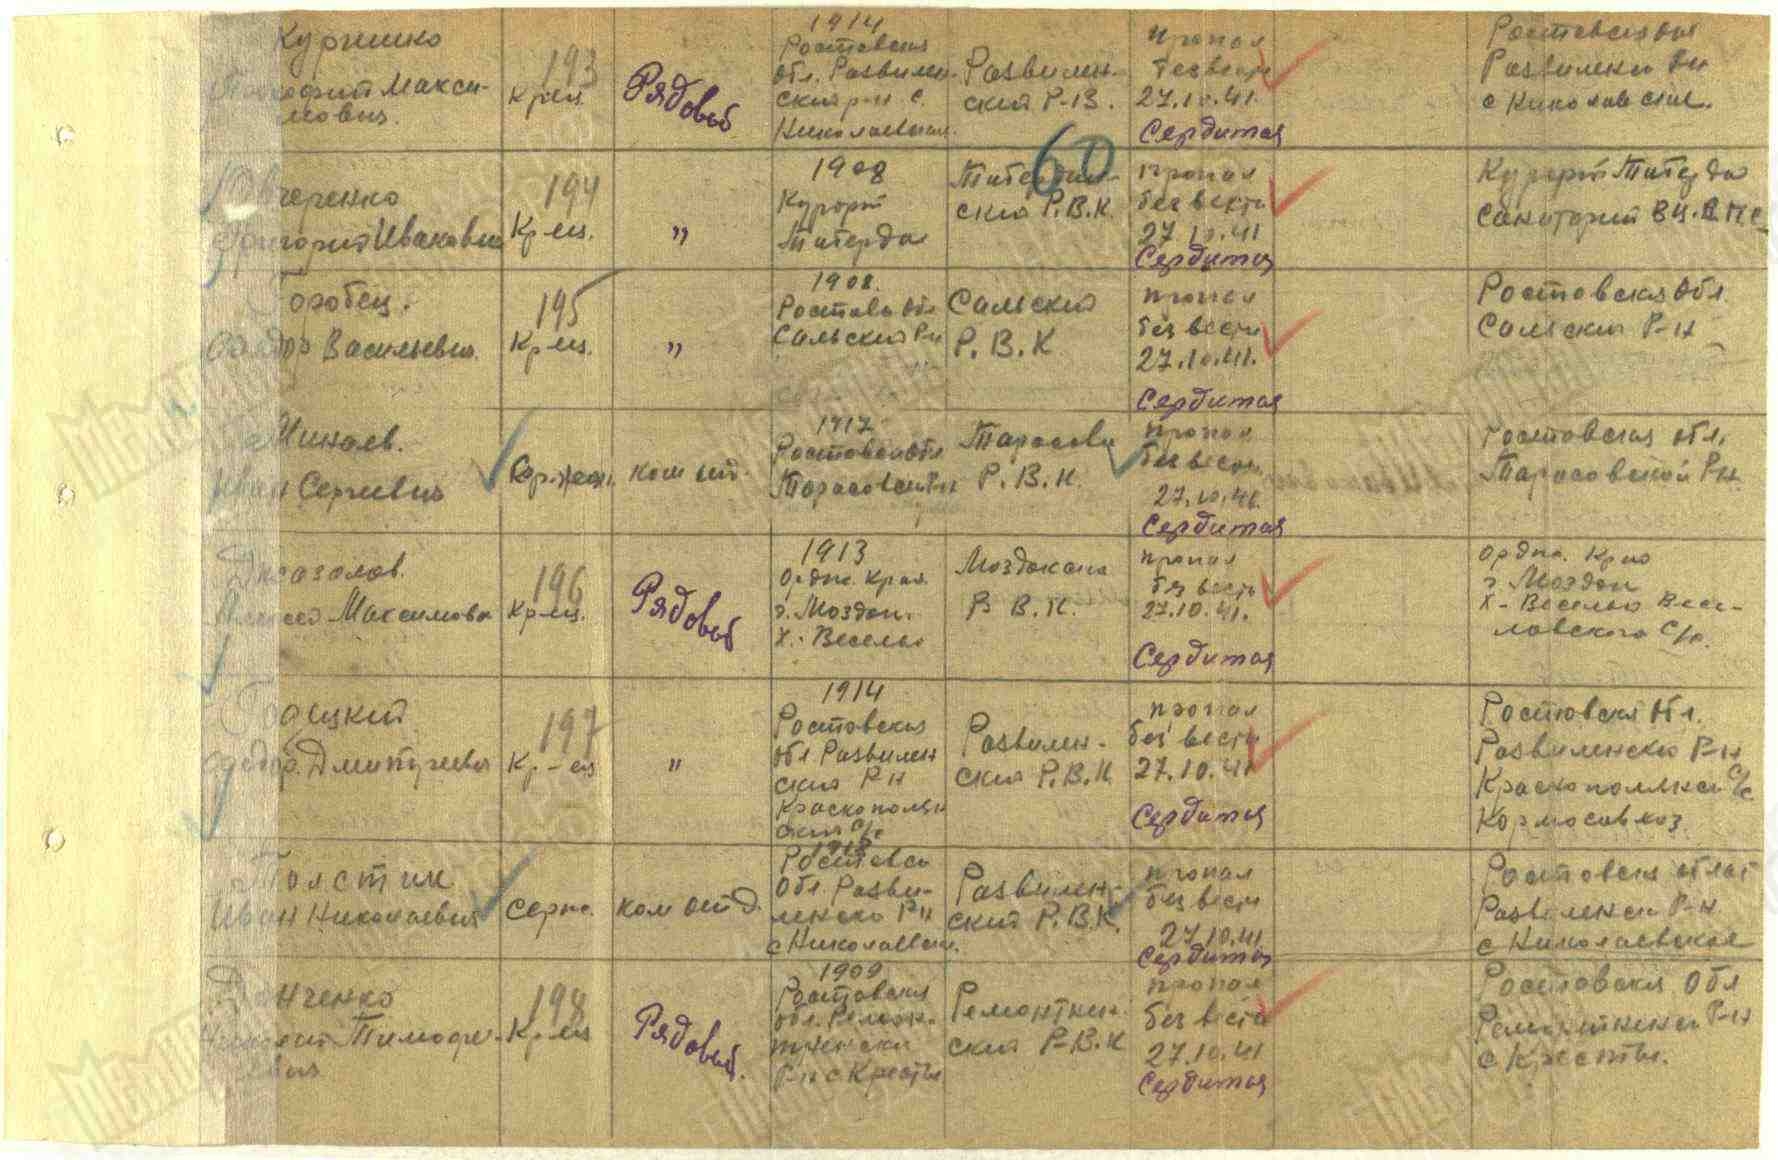 193
Макси-
мович.
Кр-ец
Рядовой
1914
Ростовская
обл. Развилен-
ский р-н с.
Николаевская.
Развилен-
ский Р.В.
пропал
без вести
27.10.41.
Сердитая
Ростовская обл
Развиленский
с Николаевская.
194
Григорий Иванович
Кр-ец.
"
1908
Курорт
Тиберда
60
ский Р.В.К.
пропал
без вести
27.10.41
Сердитая
Курорт Тиберда
Санаторий ВЦ.
195
Васильевич.
Кр-ец.
"
1908.
Ростовс обл
Сальский Р-н
Сальский
Р.В.К
пропал
без вести
27.10.41.
Сердитая
Ростовская обл.
Сальский Р-н
Иван Сергеевич
Сержант.
ком отд.
1917
Ростовск обл
Тарасовский Р-н
Тарасовск
Р.В.К.
пропал
без вести
27.10.41.
Сердитая
Ростовская обл.
Тарасовской Р-н.
196
Алексей Максимович
Кр-ец.
Рядовой
1913
Ордж. Край.
г. Моздок.
Х. Веселый
Моздокский
Р.В.К.
пропал
без вести
27.10.41.
Сердитая
Ордж. Край
г. Моздок
Х- Веселый Весе-
ловского С/с.
197
Дмитриевич
Кр-ец
"
1914
Ростовская
обл Развилен
ский Р-н
Краснополян
ский С/с
Развилен-
ский Р.В.К
пропал
без вести
27.10.41
Сердитая
Ростовская обл.
Развиленский Р-н
Краснополянский С/с
Кормосовхоз
Толстик
Иван Николаевич
серж.
ком отд.
Ростовск
обл. Разви-
ленский Р-н
с Николаевская.
Развилен-
ский Р.В.К
пропал
без вести
27.10.41
Сердитая
Ростовская област
Развиленский Р-н
с Николаевская
198
Тимофе-
евич
Кр-ец
Рядовой.
1909
Ростовская
обл. Ремон-
тненский
Р-н с Кресты
Ремонтнен-
ский Р.В.К
пропал
без вести
27.10.41
Сердитая
Ростовская обл
Ремонтненский Р-н
с Кресты.